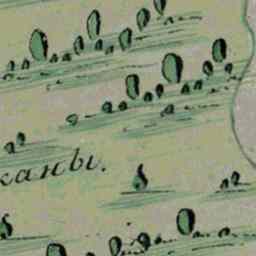 каны.